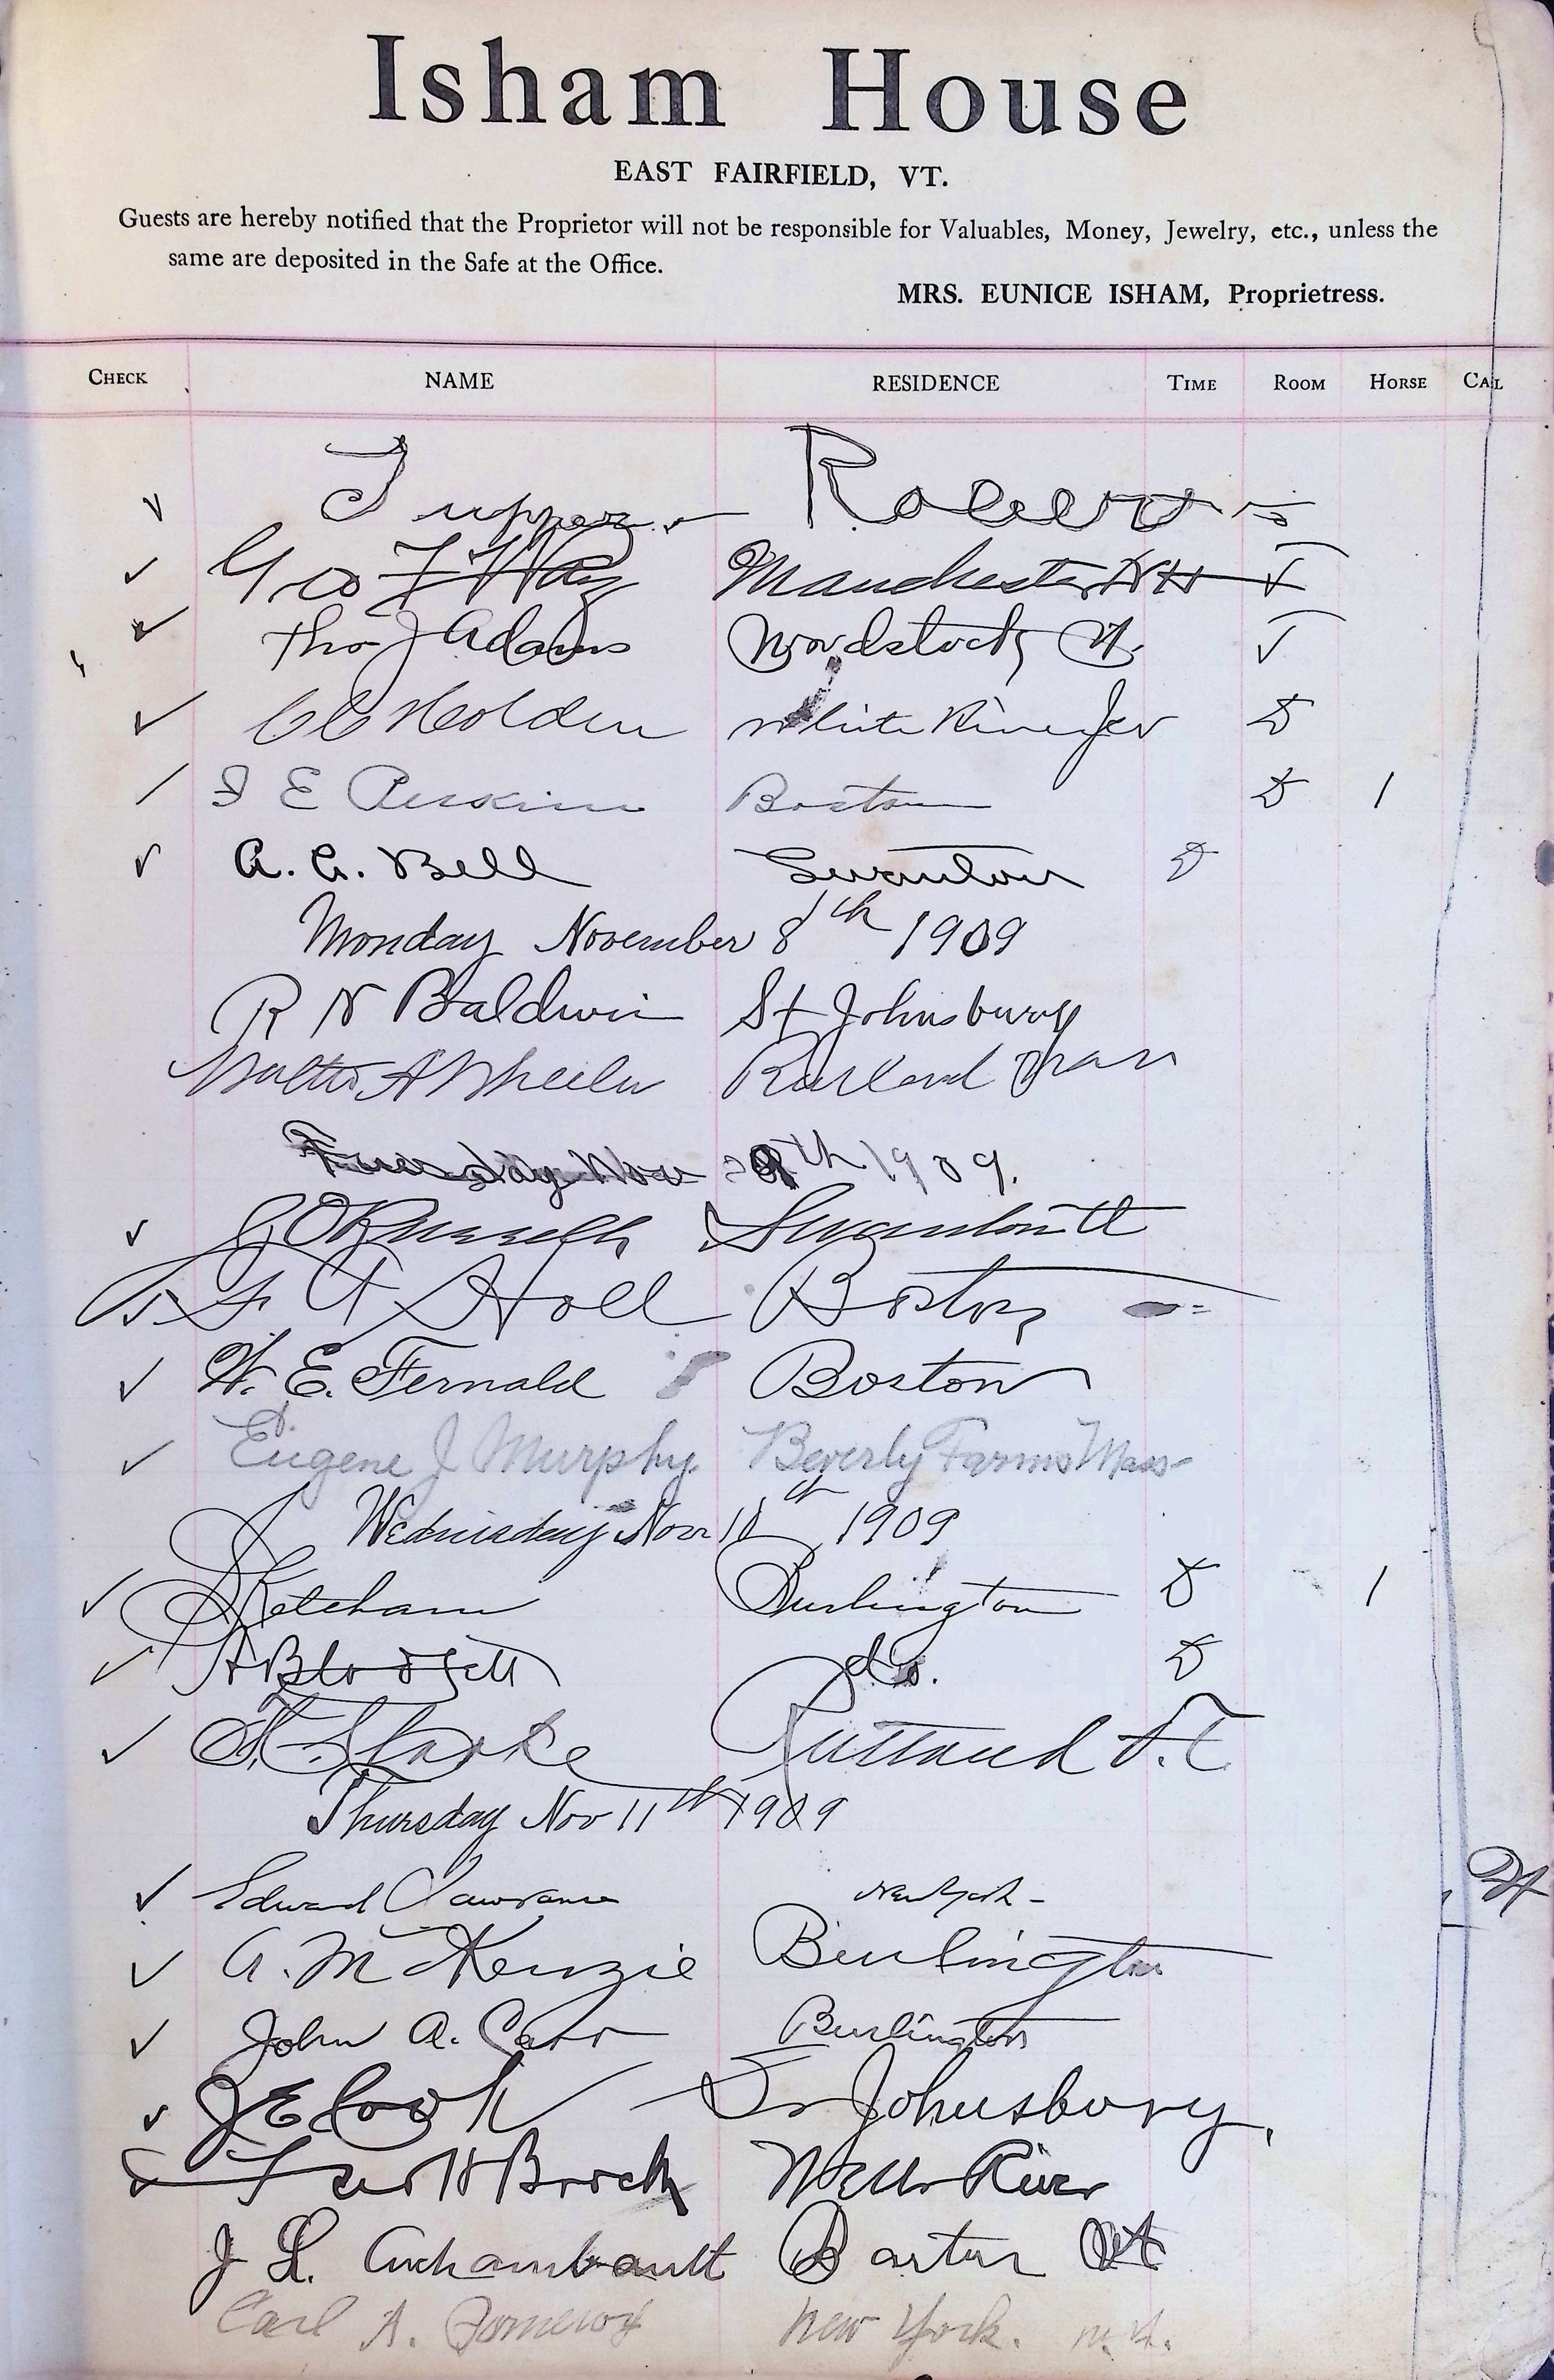 Isham House
EAST FAIRFIELD, VT.
Guests are hereby notified that the Proprietor will not be responsible for Valuables, Money, Jewelry, etc., unless the
same are deposited in the Safe at the Office.
MRS. EUNICE ISHAM, Proprietress.
CHECK NAME RESIDENCE TIME ROOM HORSE CALL
Geo F Way Manchester NH
Thos J Adams Woodstock Vt.
Holden White River Jcv
E Perkins Boston 1
A. G. Bell Swanton
Monday November 8th 1909
R N Baldwin St Johnsbury
Walter A Wheeler Rutland Mass
Tuesday Nov 9th 1909.
G O Russell Swanton Vt
Boston
W. E. Fernald Boston
Eugene J Murphy. Beverly Farms Mass
Wednesday Nov 10th 1909
Ketcham Burlington 1
A Blodgett do.
Rutland V.T.
Thursday Nov 11th 1909
Edward Lawrance New York -
A. McKenzie Burlington
John A. Carr Burlington
J E Cook St Johnsbury,
H Brock Wells River
J L. Archambault Barton Vt
Carl A. Pomeroy New York. N.Y.